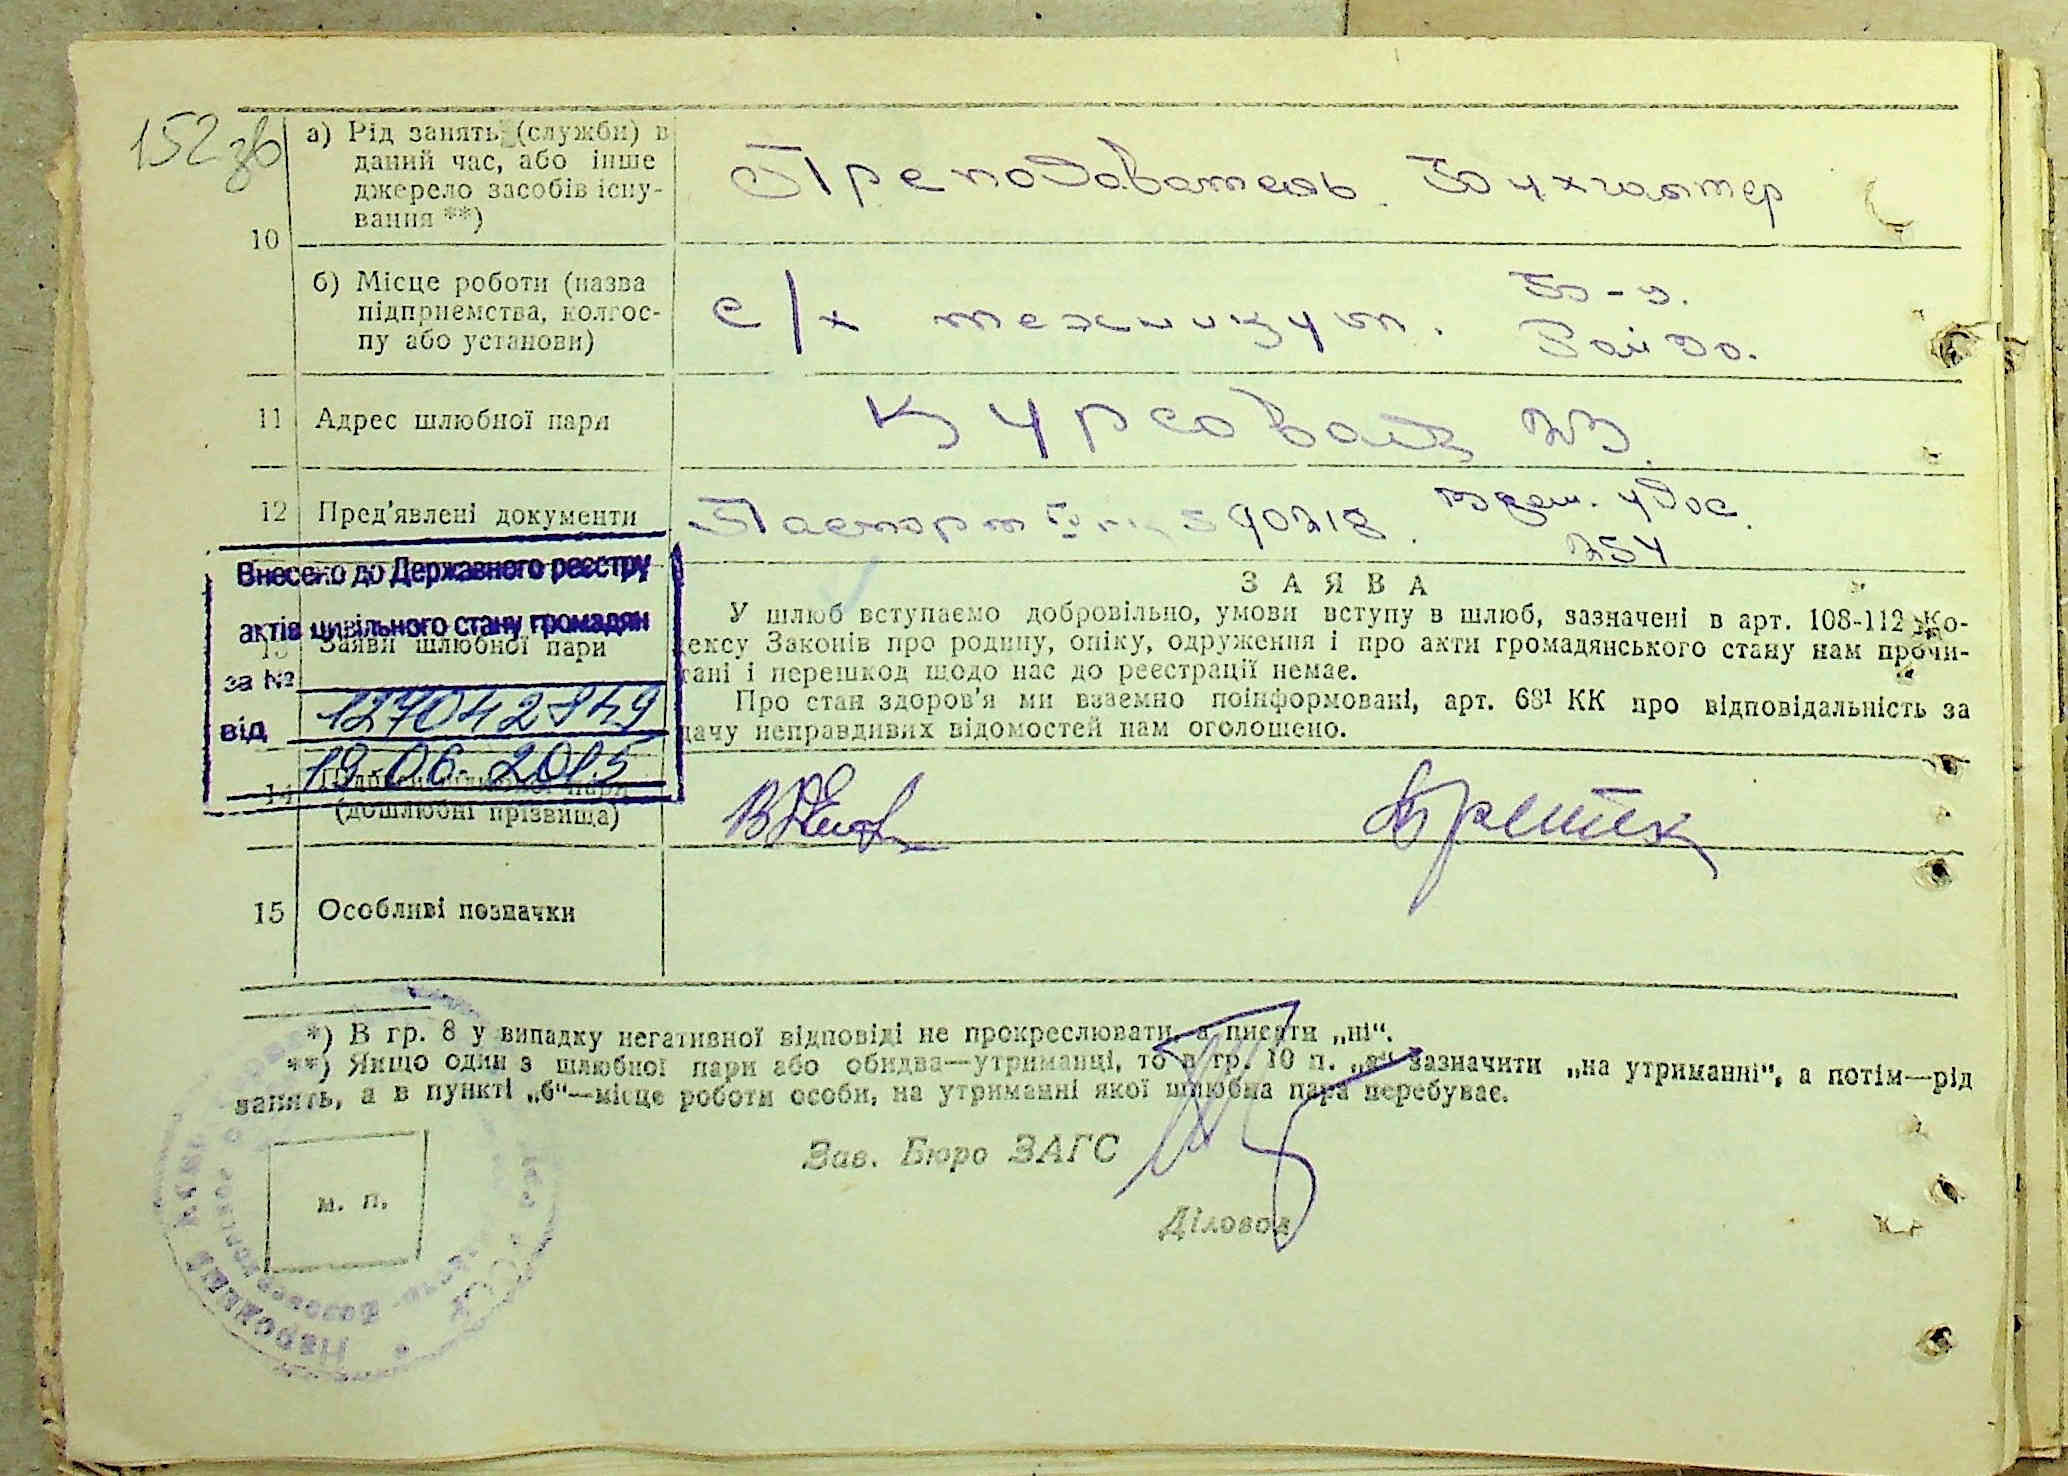 152 зв
а) Рід занять (служби) в
даний час, або інше
джерело засобів існу-
вання **)
Преподаватель. Бухгалтер
10
б) Місце роботи (назва
підприємства, колгос-
пу або установи)
с/х техникум.
Рай
11 Адрес шлюбної пари
Курсовая 23.
12 Пред'явлені документи
Паспорт 590218. Врем. удос.
254
Внесено до Державного реєстру
актів цивільного стану громадян
за №
від 19.06.2015
13 Заяви шлюбної пари
ЗАЯВА
У шлюб вступаємо добровільно, умови вступу в шлюб, зазначені в арт. 108-112 Ко-
ексу Законів про родину, опіку, одруження і про акти громадянського стану нам прочи-
тані і перешкод щодо нас до реєстрації немає.
Про стан здоров'я ми взаємно поінформовані, арт. 68¹ КК про відповідальність за
дачу неправдивих відомостей нам оголошено.
14
(дошлюбні прізвища)
15 Особливі позначки
*) В гр. 8 у випадку негативної відповіді не прокреслювати, а писати „ні“.
**) Якщо один з шлюбної пари або обидва—утриманці, то в гр. 10 п. „а“ зазначити „на утриманні“, а потім—рід
занять, а в пункті „б“—місце роботи особи, на утриманні якої шлюбна пара перебуває.
Зав. Бюро ЗАГС
м. п.
Діловод